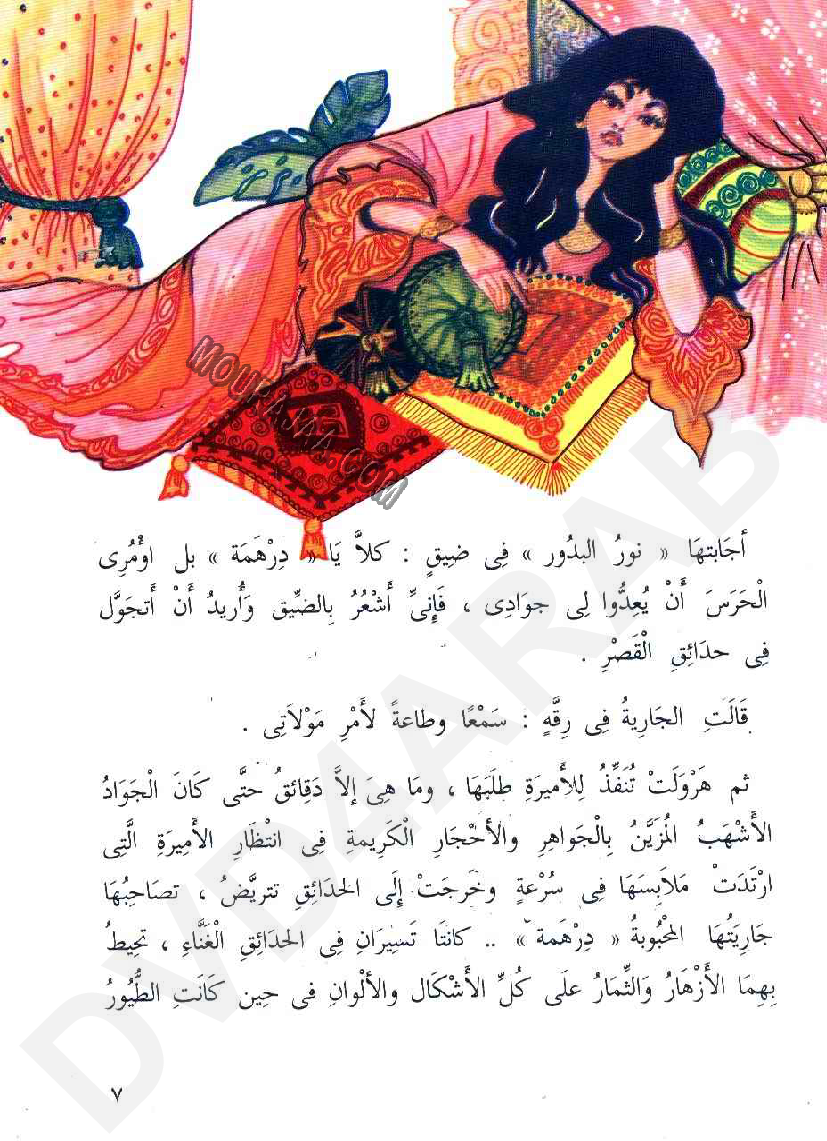 MOURAJAA.COM
أجَابتهَا « نورُ البدُور » فِى ضِيقٍ : كلاَّ يَا « دِرْهَمَة » بل اوْمُرِى
الْحَرَسَ أَنْ يُعِدُّوا لِى جوَادِى ، فَإِنىِّ أَشْعُرُ بِالضِّيق وَأُريدُ أَنْ أَتجَوَّل
فِى حدَائِقِ الْقَصْرِ .
قَالَتِ الجَاريةُ فِى رِقَّهٍ : سَمْعًا وطاعةً لأَمْرِ مَوْلاَتِى .
ثم هَرْوَلَتْ تُنَفِّذُ لِلأَميرَةِ طلَبَهَا ، ومَا هِىَ إلاَّ دَقَائقُ حتَّى كَانَ الْجَوَادُ
الأَشْهَبُ المُزيَّنُ بِالْجَواهرِ والأحْجَارِ الْكَرِيمةِ فِى انتْظَارِ الأَمِيرَةِ الَّتِى
ارْتَدَتْ مَلاَبِسَهَا فِى سُرْعَةٍ وخَرجَتْ إِلَى الحَدَائقِ تتريَّضُ ، تصَاحِبُهَا
جَارِيَتُهَا المَحْبُوبةُ « دِرْهَمة » .. كانتَا تَسِيرَانِ فِى الحدَائقِ الْغَنَّاءِ ، تحِيطُ
بِهِمَا الأَزْهَارُ وَالثِّمَارُ علَى كُلِّ الأَشْكَال والألْوانِ فى حِين كَانَتِ الطُّيُورُ
٧
DVD4ARAB